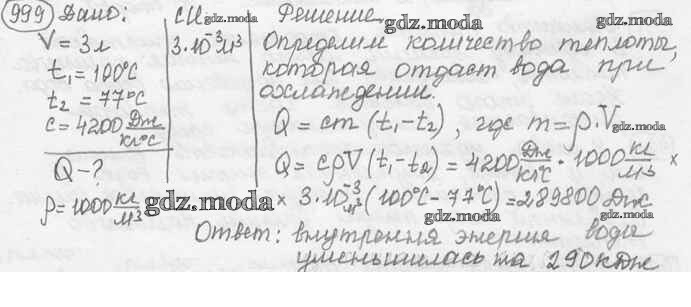 999 Дано: СИ: gdz.moda Решение. gdz.moda
V = 3 л 3·10⁻³м³ Определим количество теплоты,
t₁ = 100°С которая отдаст вода при
gdz.moda
t₂ = 77°С охлаждении.
c = 4200 Дж/кг°С Q = cm (t₁-t₂), где m = ρ·V. gdz.moda
Q - ? Q = cρV (t₁-t₂) = 4200 Дж/кг°С · 1000 кг/м³ ×
ρ = 1000 кг/м³ gdz.moda × 3·10⁻³ м³ (100°С - 77°С) = 289800 Дж
gdz.moda gdz.moda
Ответ: внутренняя энергия воды
уменьшилась на 290 кДж
gdz.moda gdz.moda